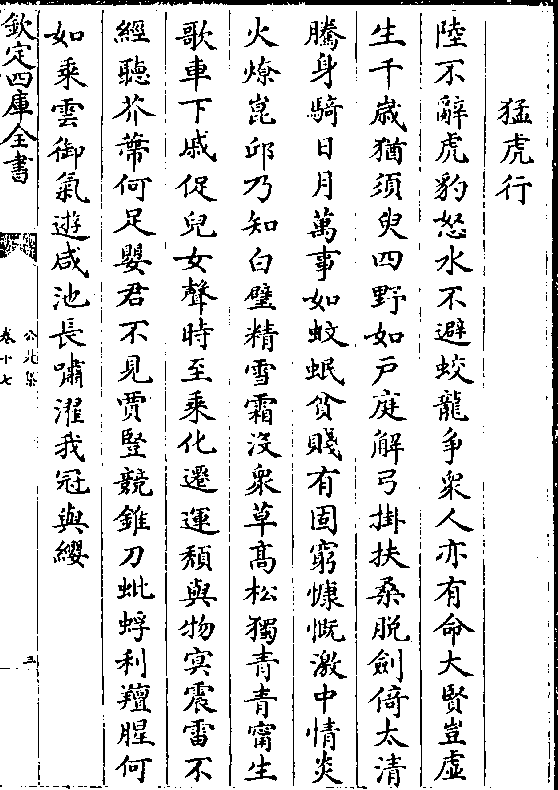 猛虎行
陸不辭虎豹怒水不避蛟龍爭衆人亦有命大賢豈虛
生千歳猶須臾四野如戸庭解弓掛扶桑脱劍倚太清
騰身騎日月萬事如蚊蚋貧賤有固窮慷慨激中情炎
火燎崑邱乃知白璧精雪霜沒衆草髙松獨青青甯生
歌車下戚促兒女聲時至乘化遷運頽與物㝠震雷不
經聽芥蔕何足嬰君不見賈豎競錐刀蚍蜉利羶腥何
如乘雲御氣遊咸池長嘯濯我冠與纓
欽定四庫全書
公是集
卷十七
三